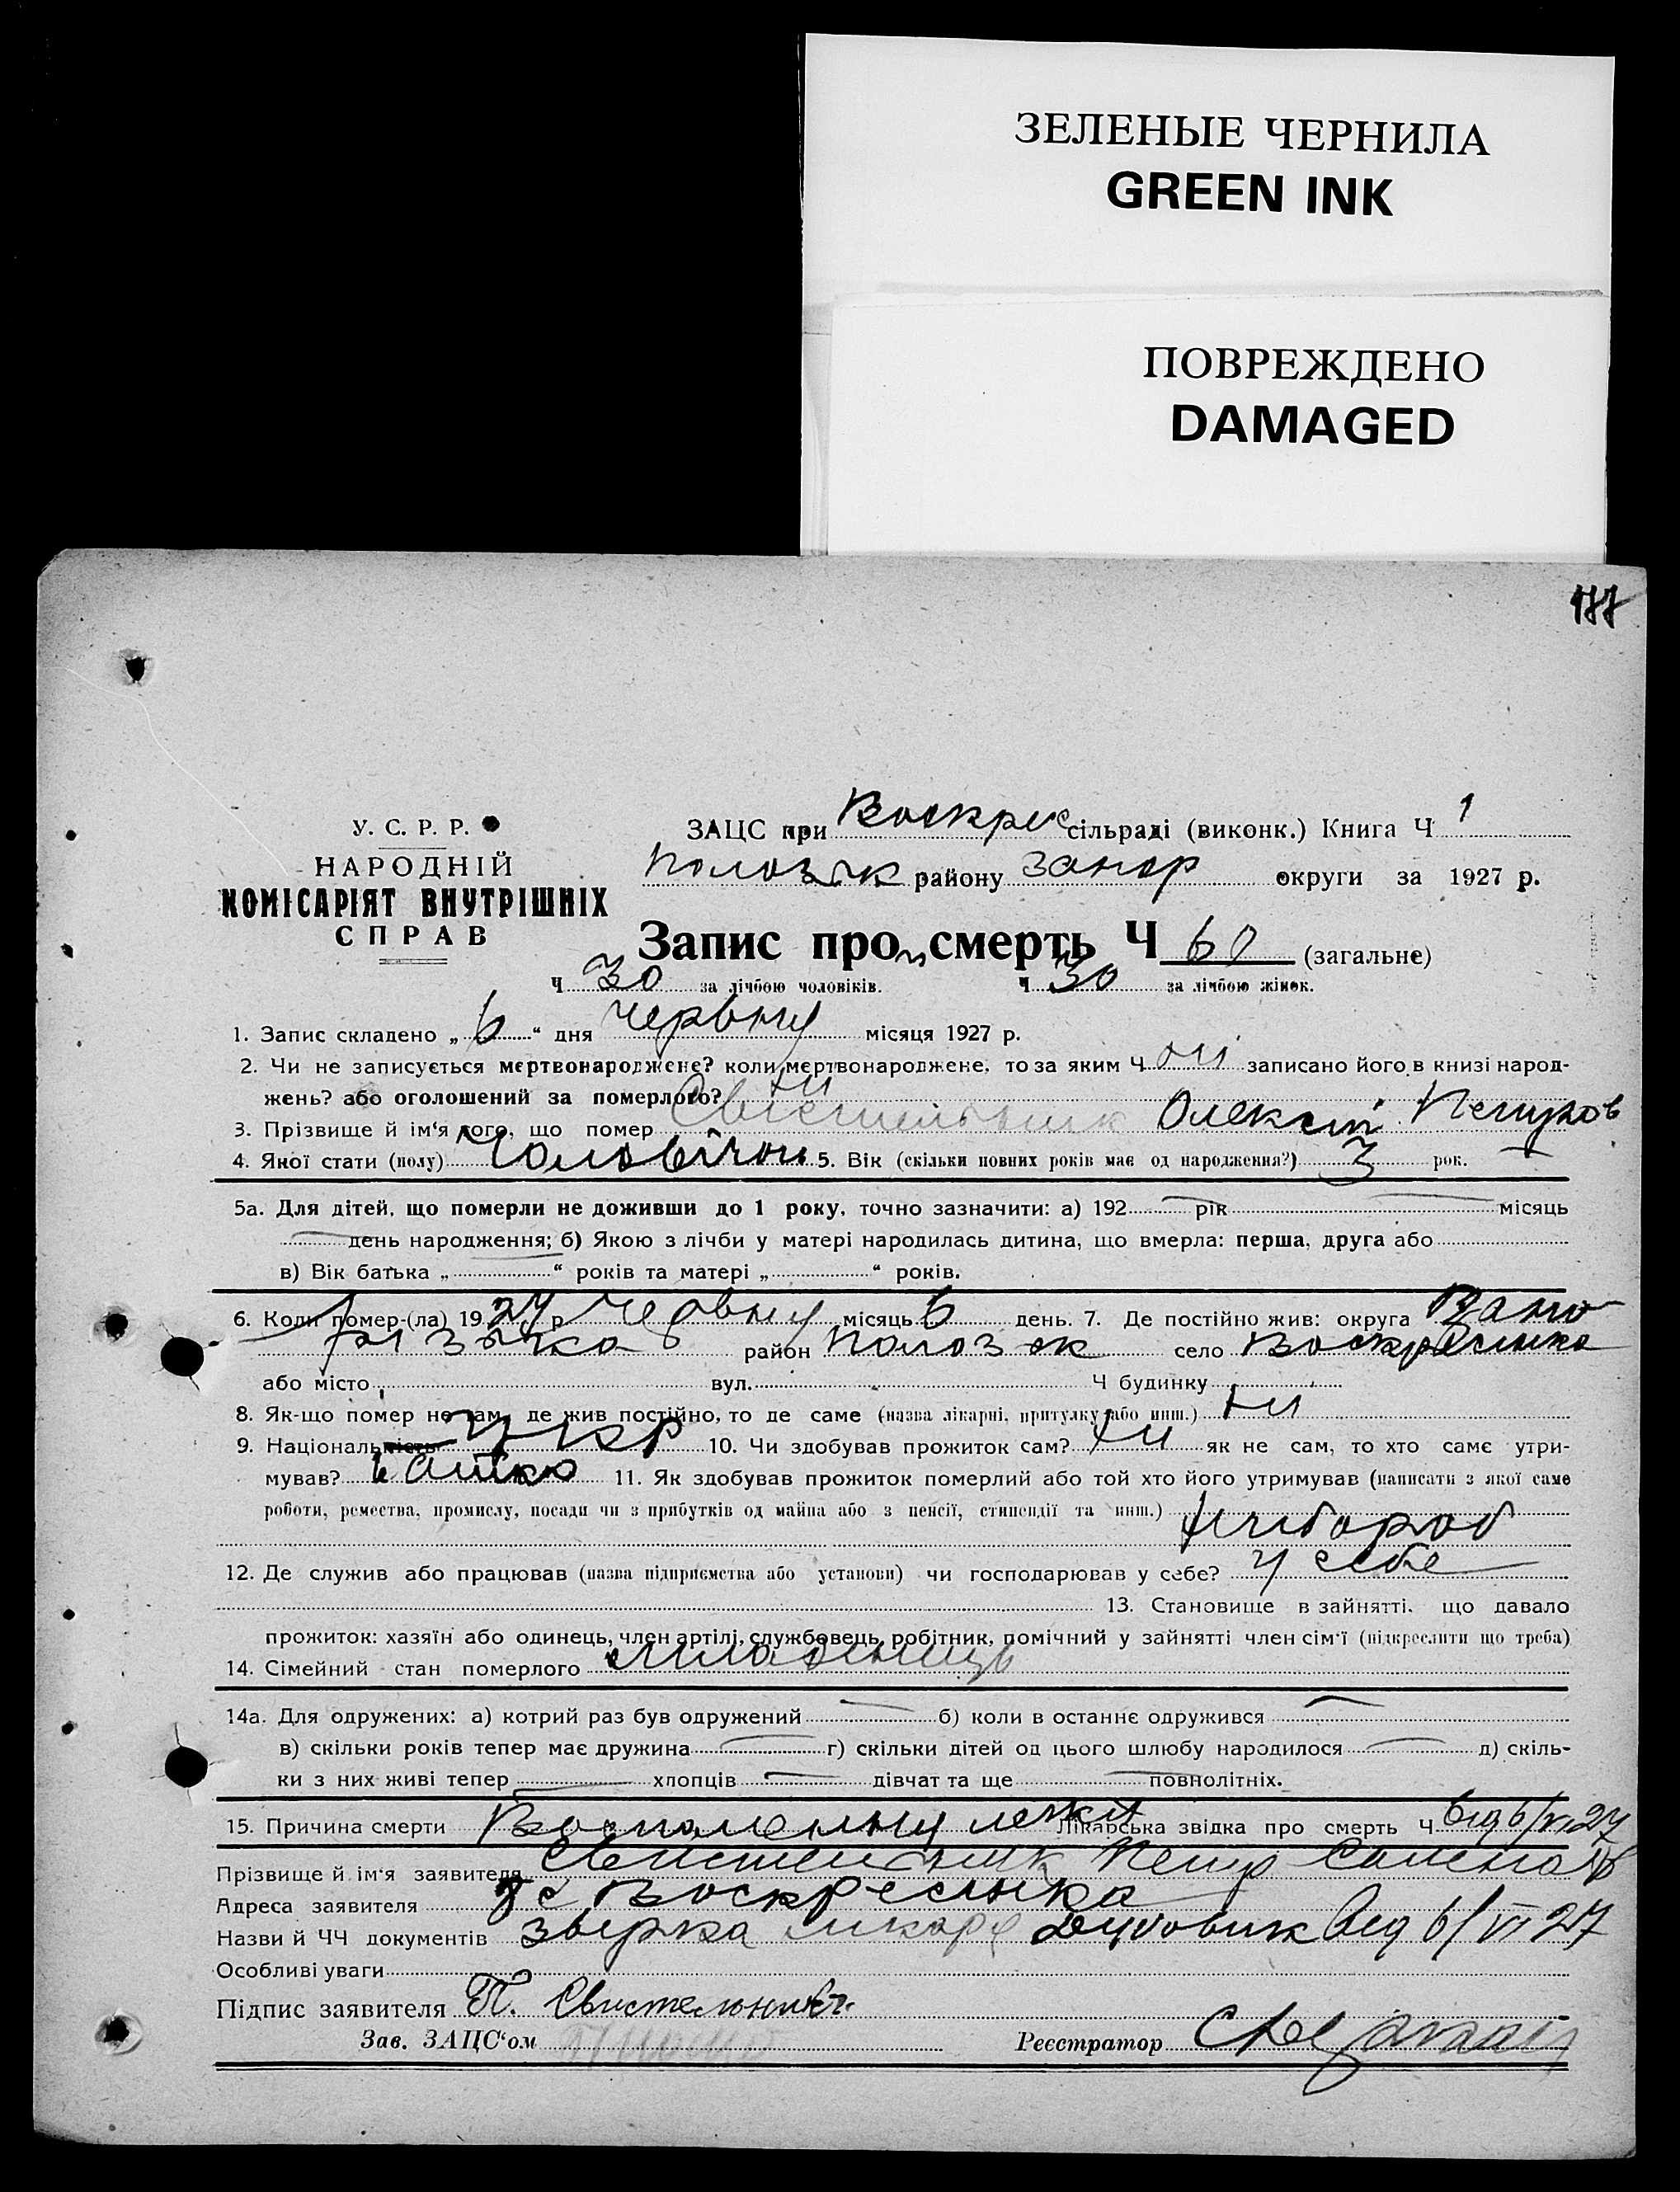 ЗЕЛЕНЫЕ ЧЕРНИЛА
GREEN INK
ПОВРЕЖДЕНО
DAMAGED
177
У. С. Р. Р.
НАРОДНІЙ
КОМІСАРІЯТ ВНУТРІШНІХ
СПРАВ
ЗАЦС при Воскрес сільраді (виконк.) Книга Ч 1
району Запор округи за 1927 р.
Запис про смерть Ч 60 (загальне)
Ч 30 за лічбою чоловіків. Ч 30 за лічбою жінок.
1. Запис складено „ 6 “ дня Червну місяця 1927 р.
2. Чи не записується мертвонароджене? коли мертвонароджене, то за яким Ч ні записано його в книзі народ-
жень? або оголошений за померлого? ни
3. Прізвище й ім'я того, що помер Свистельник Олексій Петров
4. Якої статі (полу) 5. Вік (скільки повних років має од народження?) 3 рок.
5а. Для дітей, що померли не доживши до 1 року, точно зазначити: а) 192 рік місяць
день народження; б) Якою з лічби у матері народилась дитина, що вмерла: перша, друга або
в) Вік батька „ “ років та матері „ “ років.
6. Коли помер-(ла) 19 27 р Червну місяць 6 день. 7. Де постійно жив: округа Запо
різька район село Воскресинка
або місто вул. Ч будинку
8. Як-що помер не там, де жив постійно, то де саме (назва лікарні, притулку або инш.) ни
9. Національність Укр 10. Чи здобував прожиток сам? ни як не сам, то хто саме утри-
мував? батько 11. Як здобував прожиток померлий або той хто його утримував (написати з якої саме
роботи, ремества, промислу, посади чи з прибутків од майна або з пенсії, стипендії та инш.) хлибороб
12. Де служив або працював (назва підприємства або установи) чи господарював у себе? у себе
13. Становище в зайнятті, що давало
прожиток: хазяїн або одинець, член артілі, службовець, робітник, помічний у зайнятті член сім'ї (підкреслити що треба)
14. Сімейний стан померлого младенець
14а. Для одружених: а) котрий раз був одружений б) коли в останнє одружився
в) скільки років тепер має дружина г) скільки дітей од цього шлюбу народилося д) скіль-
ки з них живі тепер хлопців дівчат та ще повнолітніх.
15. Причина смерти Лікарська звідка про смерть Ч від 6/VI 27
Прізвище й ім'я заявителя Свистельник Петр
Адреса заявителя с Воскресинка
Назви й ЧЧ документів від 6/VI 27
Особливі уваги
Підпис заявителя П. Свистельник
Зав. ЗАЦС'ом Реєстратор